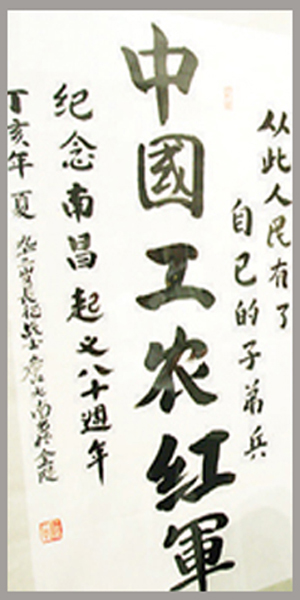 从此人民有了
自己的子弟兵
中國工农紅軍
纪念南昌起义八十週年
丁亥年夏